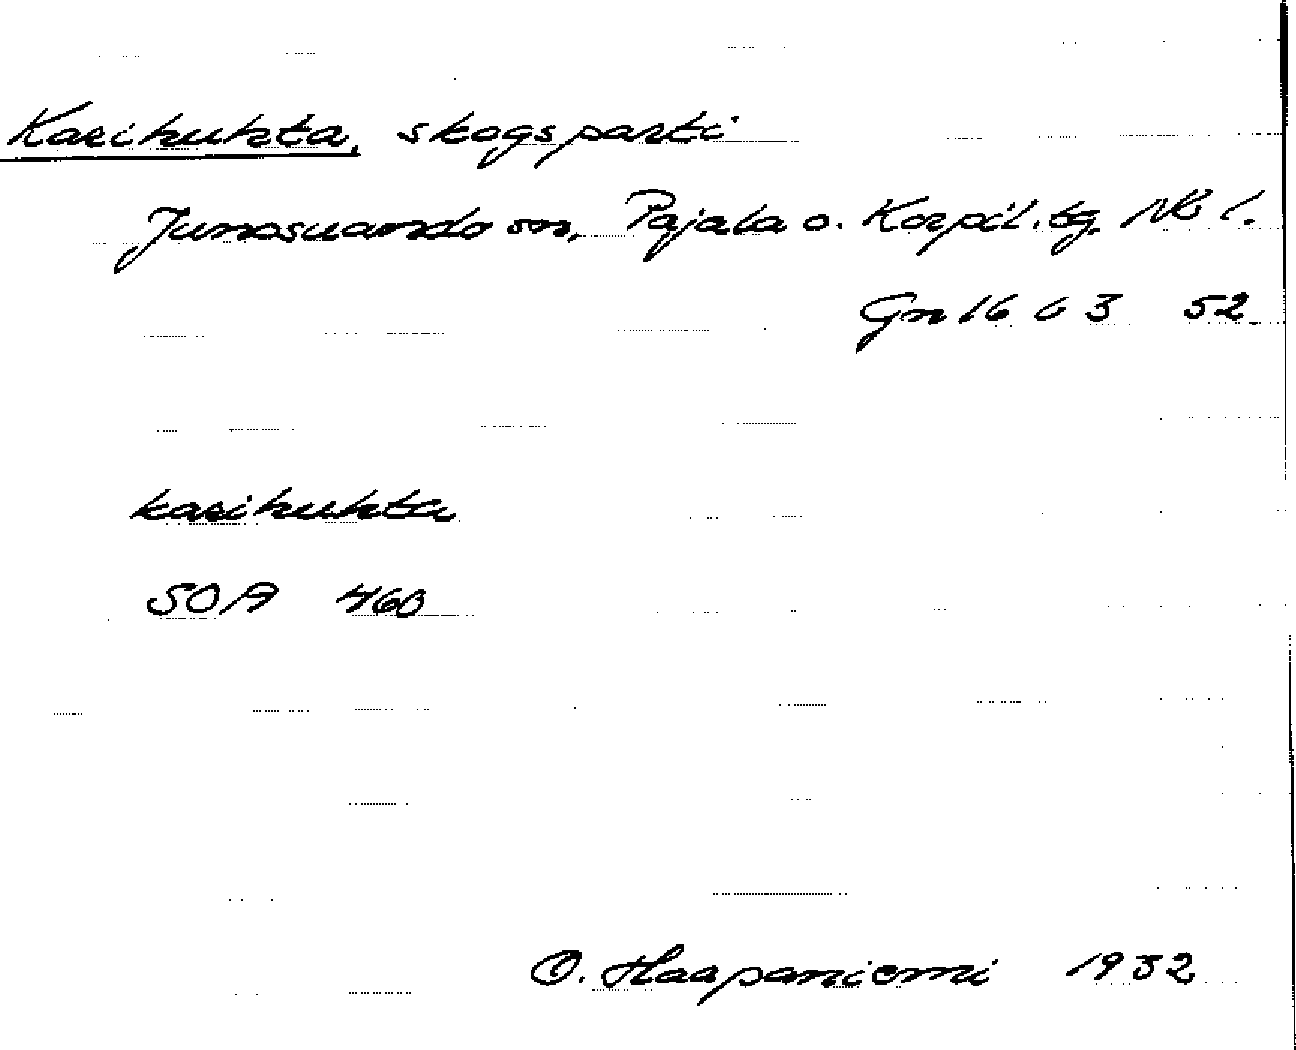 Karihuhta, skogsparti
Junosuando sn, Pajala o. Korpil. tg. Nb l.
Gn 16 3 52
karihuhta
SOA 460
O. Haapaniemi 1932